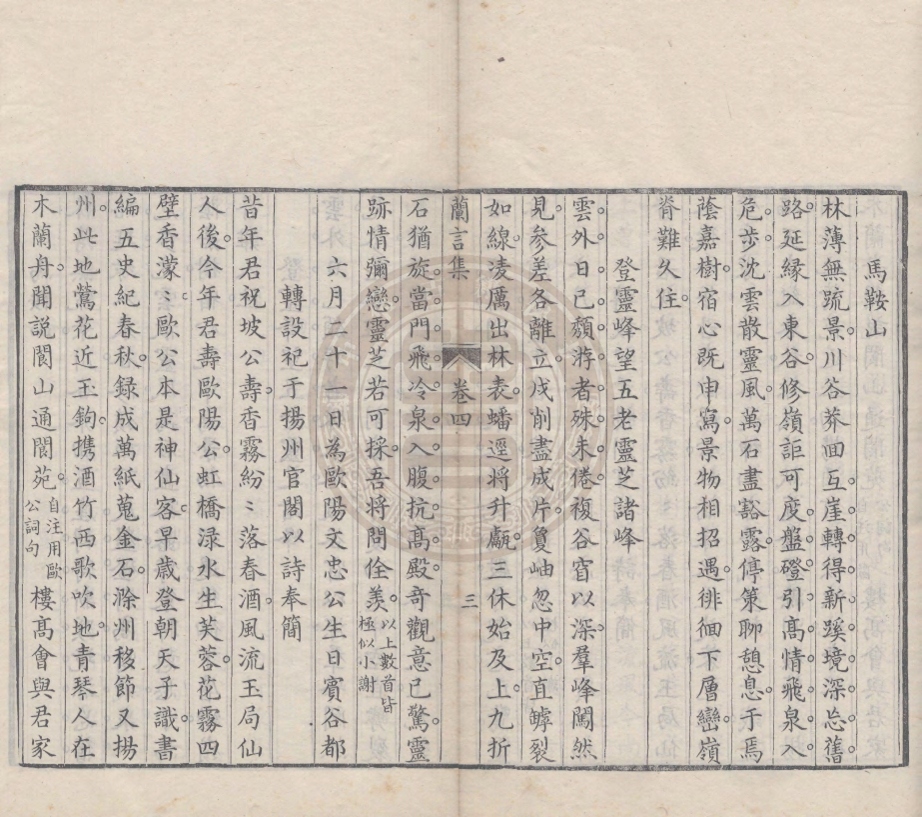 馬鞍山
林薄無疏景川谷莽回互崖轉得新蹊境深忘舊
路延緣入東谷修嶺詎可度盤磴引高情飛泉入
危步沈雲散靈風萬石盡豁露停策聊憩息于焉
蔭嘉樹宿心既申寫景物相招遇徘徊下層巒嶺
脊難久住
登靈峰望五老靈芝諸峰
雲外日已頹游者殊未倦複谷窅以深羣峰闖然
見參差各離立戍削盡成片夐岫忽中空直罅裂
如線凌厲出林表蟠逕將升甗三休始及上九折
蘭言集 卷四 三
石猶旋當門飛冷泉入腹抗高殿奇觀意已驚靈
跡情彌戀靈芝若可採吾將問佺羨以上數首皆極似小謝
六月二十一日為歐陽文忠公生日賓谷都
轉設祀于揚州官閣以詩奉簡
昔年君祝坡公壽香霧紛〻落春酒風流玉局仙
人後今年君壽歐陽公虹橋淥水生芙蓉花霧四
壁香濛〻歐公本是神仙客早歲登朝天子識書
編五史紀春秋錄成萬紙蒐金石滁州移節又揚
州此地鶯花近玉鉤攜酒竹西歌吹地青琴人在
木蘭舟聞說閬山通閬苑自注用歐公詞句樓高會與君家